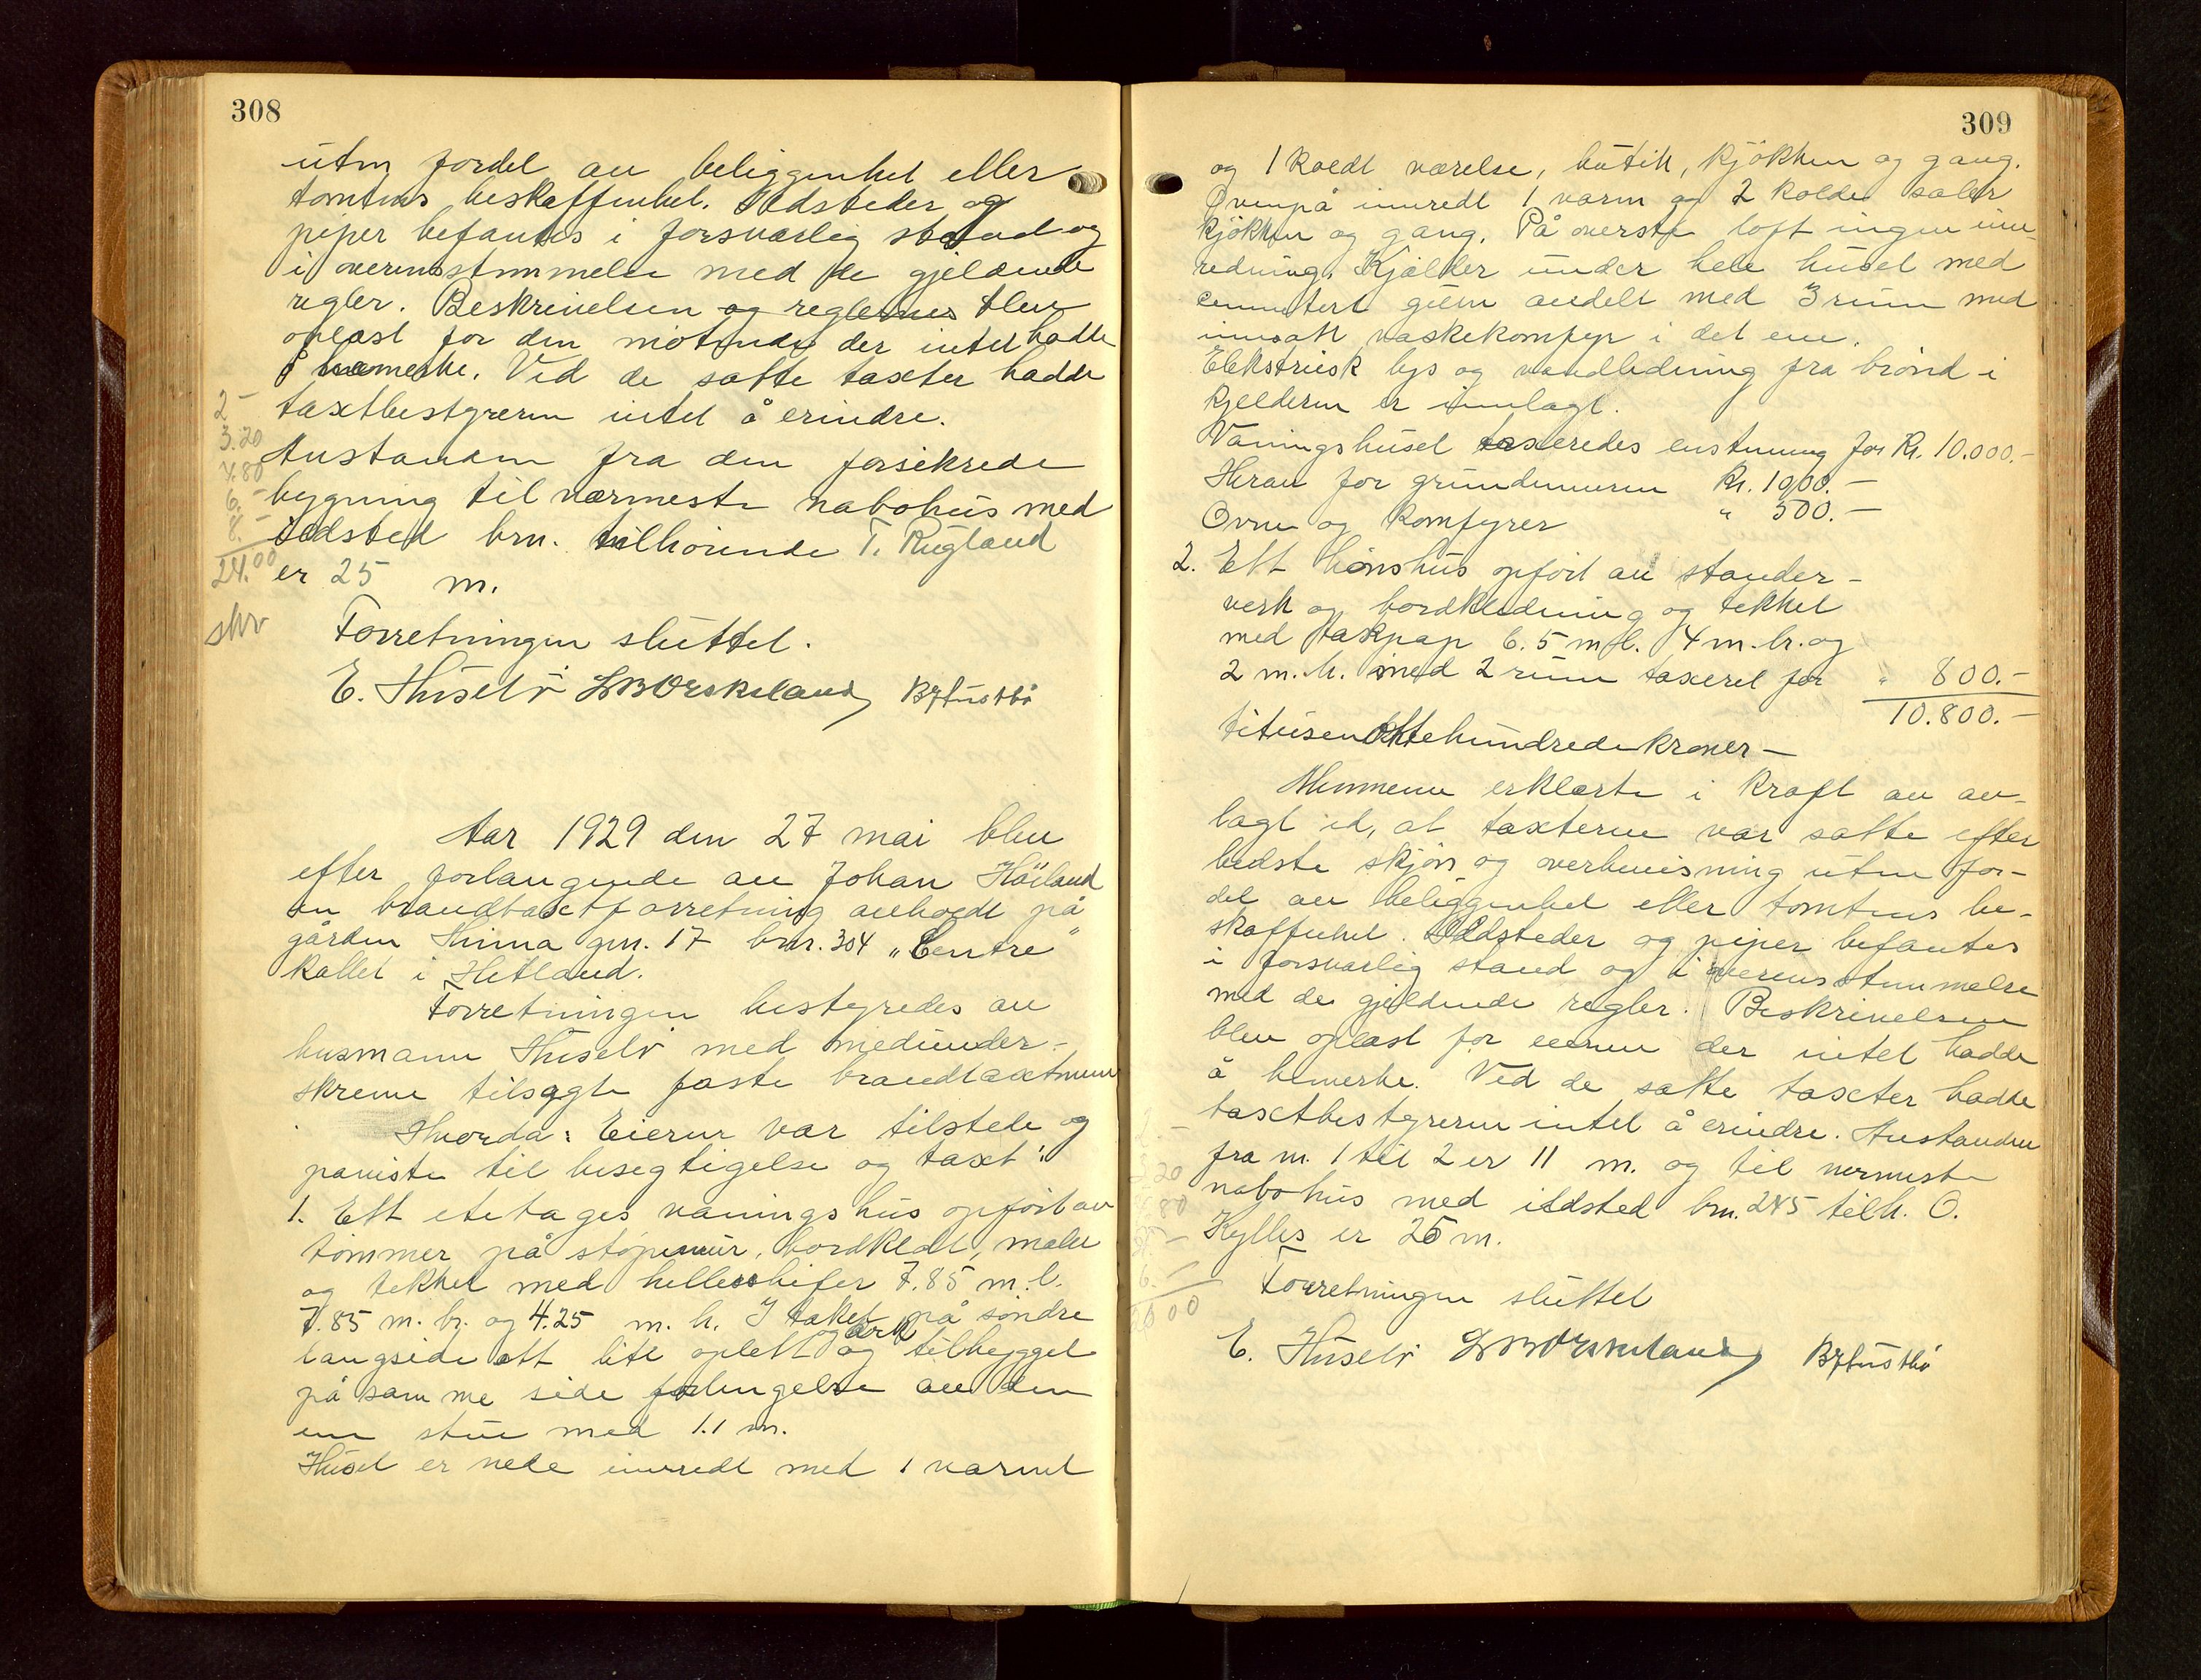 308
uten fordel av beliggenhet eller
tomtens beskaffenhet. Ildsteder og
piper befantes i forsvarlig stand og
i overensstemmelse med de gjeldende
regler. Beskrivelsen og reglernes blev
oplæst for den møtende der intet hadde
å bemerke. Ved de satte taxter hadde
taxtbestyreren intet å erindre.
Avstanden fra den forsikrede
bygning til nærmeste nabohus med
ildsted brn. tilhørende T. Rugland
er 25 m.
2 -
3.20
4.80
6. -
8. -
24.00
skr
Forretningen sluttet.
E. Husebø
Aar 1929 den 27 mai blev
efter forlangende av Johan Höiland
en brandtaxtforretning avholdt på
gården Hinna gnr. 17 bnr. 304 "Centre"
kallet i Hetland.
Forretningen bestyredes av
husmann Husebø med medunder-
skrevne tilsagte faste brandtaxtmenn
Hvorda: Eieren var tilstede og
paviste til besegtigelse og taxt:
1. Ett etetages våningshus opført av
tømmer på støpemur, bordklædt, malet
og tekket med helleskifer 7.85 m. l.
7.85 m. br. og 4.25 m. h. I taket på søndre
langside ett lite oplett og ark og tilbygget
på samme side forlengelse av den
ene stue med 1.1 m.
Huset er nede innredt med 1 varmt
309
og 1 koldt værelse, butik, kjøkken og gang.
Ovenpå innredt 1 varm og 2 kolde saler
kjøkken og gang. På øverste loft ingen inn-
redning. Kjælder under hele huset med
cementert gulv avdelt med 3 rum med
innsatt vaskekomfyr i det ene.
Elekstrisk lys og vandledning fra brønd i
kjelderen er innlagt.
Våningshuset taxeredes enstemmig for Kr. 10.000.-
Herav for grundmuren Kr. 1900.-
Ovne og komfyrer " 500.-
2. Ett hønshus opført av stander-
verk og bordkledning og tekket
med takpap 6.5 m l. 4 m. br. og
2 m. h. med 2 rum taxeret for " 800.-
10.800.-
titusenåttehundrede kroner-
Mennene erklærte i kraft av av-
lagt ed, at taxterne var satte efter
bedste skjøn og overbevisning uten for-
del av beliggenhet eller tomtens be-
skaffenhet. Ildsteder og piper befantes
i forsvarlig stand og i overensstemmelse
med de gjeldende regler. Beskrivelsen
blev oplæst for eieren der intet hadde
å bemerke. Ved de satte taxter hadde
taxtbestyreren intet å erindre. Avstanden
fra nr. 1 til 2 er 11 m. og til nermeste
nabohus med ildsted brn. 245 tilh. O.
Kylles er 25 m.
Forretningen sluttet
E. Husebø